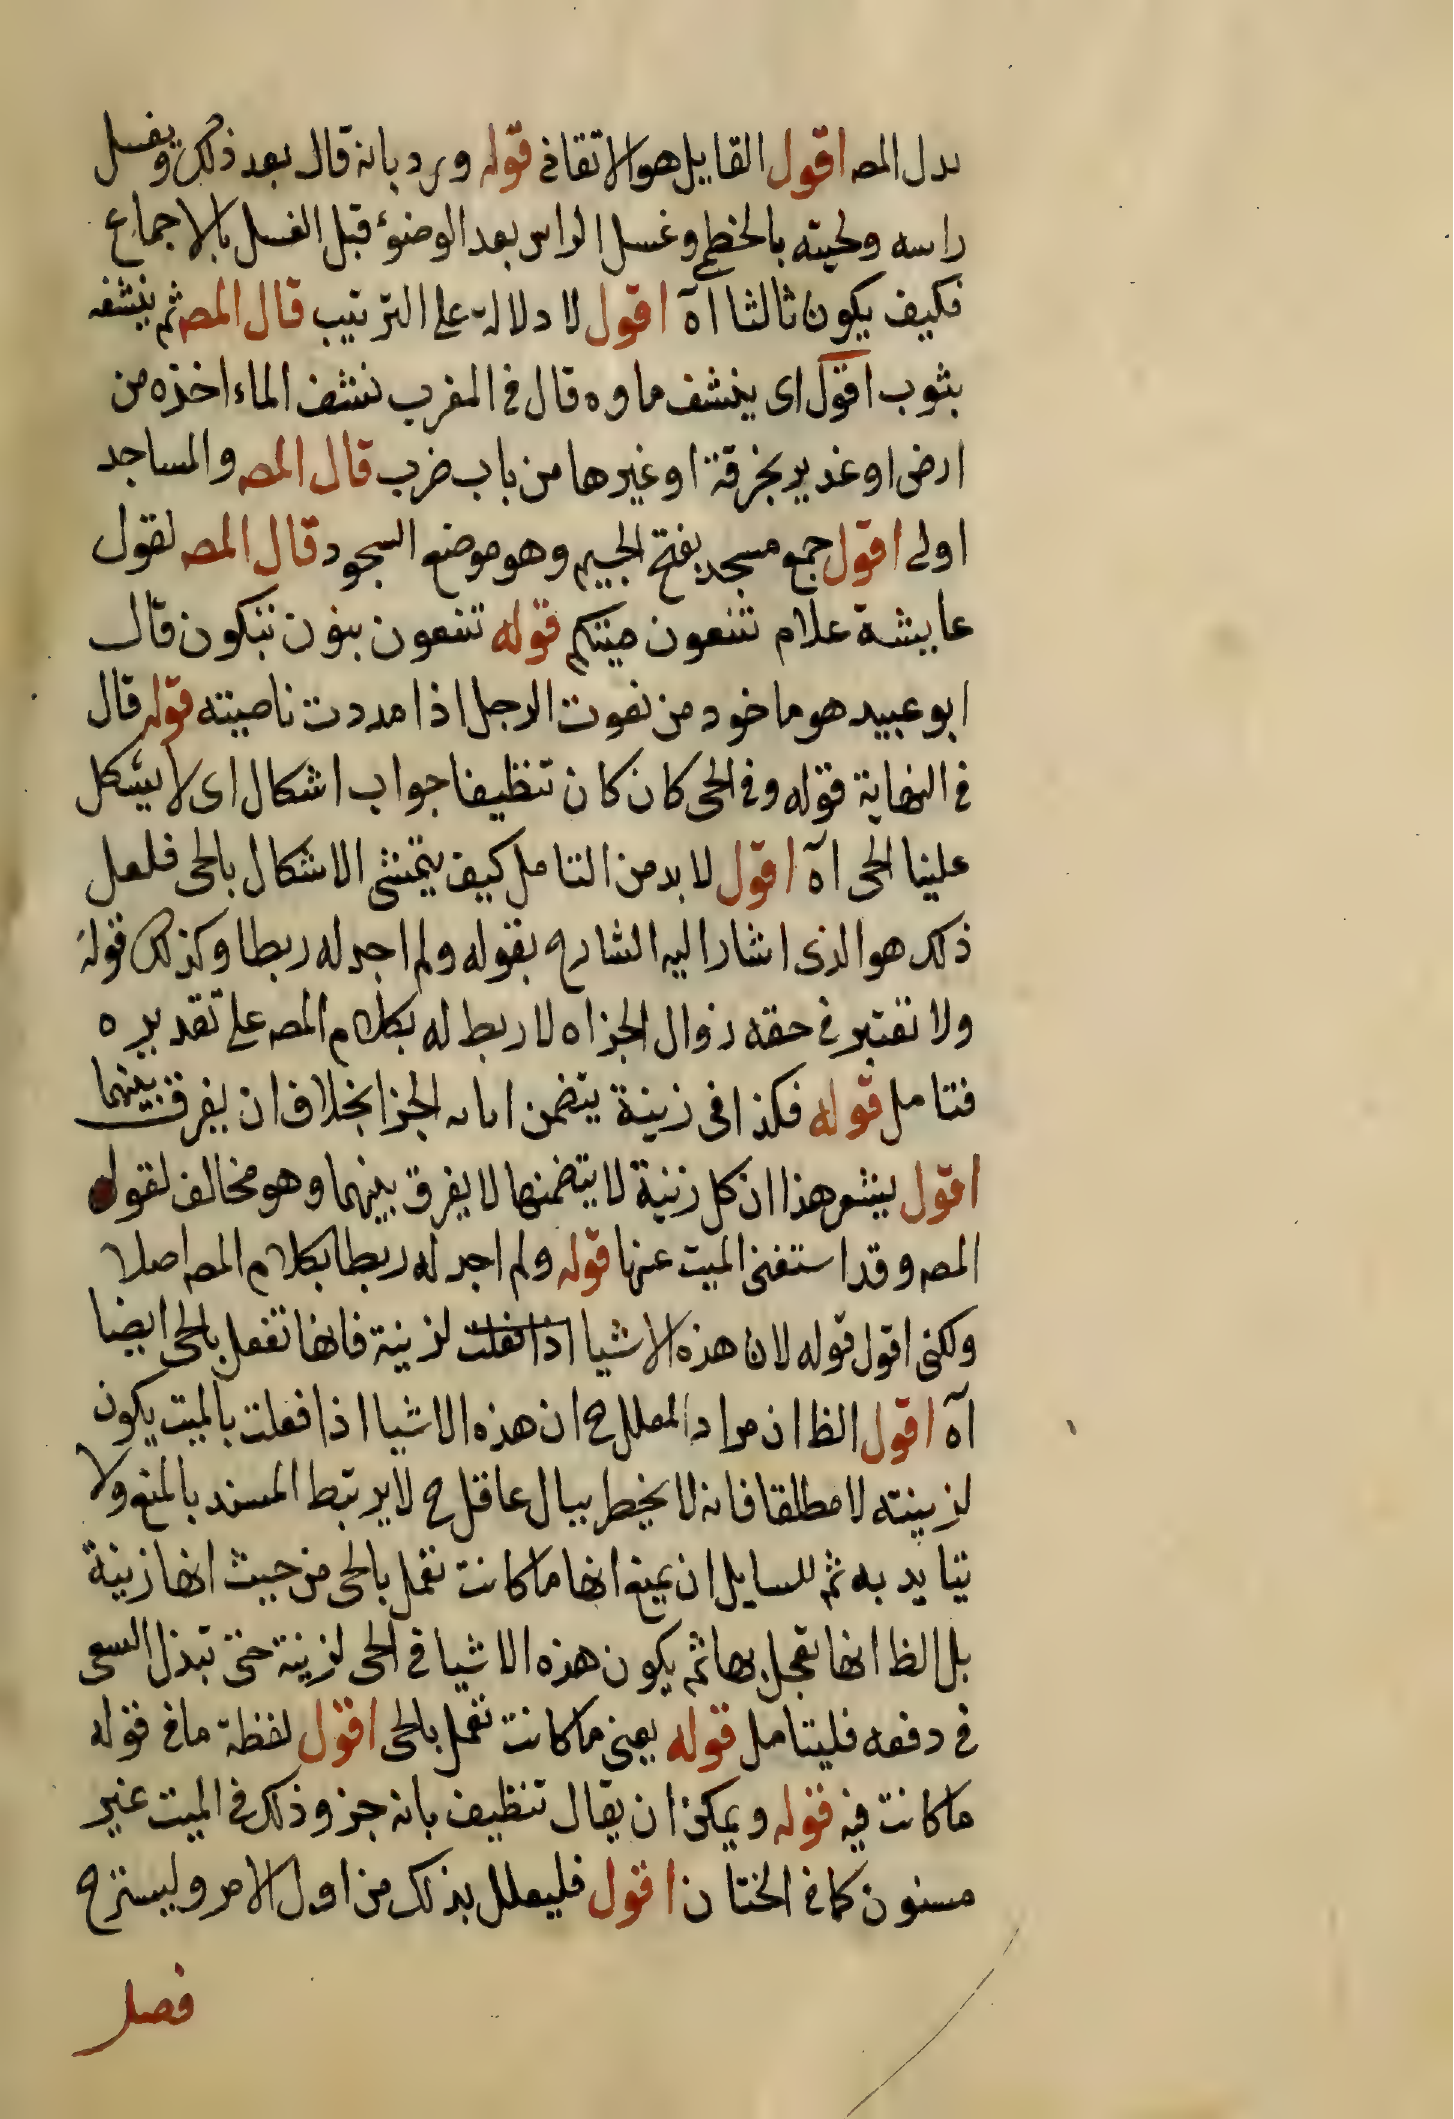 بدل المصه اقول القايل هو الاتقانى قوله ورد بانه قال بعد ذلك ويغسل
راسه ولحيته بالخطمى وغسل الراس بعد الوضوء قبل الغسل بالاجماع
فكيف يكون ثالثا اه اقول لا دلالة على الترتيب قال المصه ثم ينشفه
بثوب اقول اى ينشف ماوه قال فى المغرب نشف الماء اخذه من
ارض او غدير بخرقة او غيرها من باب ضرب قال المصه والمساجد
اولى اقول جمع مسجد بفتح الجيم وهو موضع السجود قال المصه لقول
عايشة علام تنعون ميتكم قوله تنعون بنون تنكون قال
ابو عبيد هو ماخود من نصوت الرجل اذا مددت ناصيته قوله قال
فى النهاية قوله وفى الحى كان كان تنظيفا جواب اشكال اى لا يشكل
علينا الحى اه اقول لا بد من التامل كيف يتمشى الاشكال بالحى فلعل
ذلك هو الذى اشار اليه الشارح بقوله ولم اجد له ربطا وكذلك قوله
ولا تعتبر فى حقه زوال الجزاه لا ربط له بكلام المصه على تقديره
فتامل قوله فكذا فى زينة يتضمن ابانه الجزا بخلاف ان يفرق بينهما
اقول يشعر هذا ان كل زينة لا يتضمنها لا يفرق بينهما وهو مخالف لقول
المصه وقد استغنى الميت عنها قوله ولم اجد له ربطا بكلام المصه اصلا
ولكنى اقول قوله لان هذه الاشيا اذا فعلت لزينة فانها تفعل بالحى ايضا
اه اقول الظ ان مراد المعلل ح ان هذه الاشيا اذا فعلت بالميت يكون
لزينته لا مطلقا فانه لا يخطر ببال عاقل ح لا يرتبط المسند بالمنع ولا
يتايد به ثم للسايل ان يمنع انها ما كانت تعمل بالحى من حيث انها زينة
بل الظ انها تعجل بها ثم يكون هذه الاشيا فى الحى لزينة حتى تبذل السعى
فى دفعه فليتامل قوله يعنى ما كانت تعمل بالحى اقول لفظة ما فى قوله
ما كانت فيه قوله ويمكن ان يقال تنظيف بانه جز وذلك فى الميت غير
مسنون كما فى الختان اقول فليعلل بذلك من اول الامر وليسترح
فصل